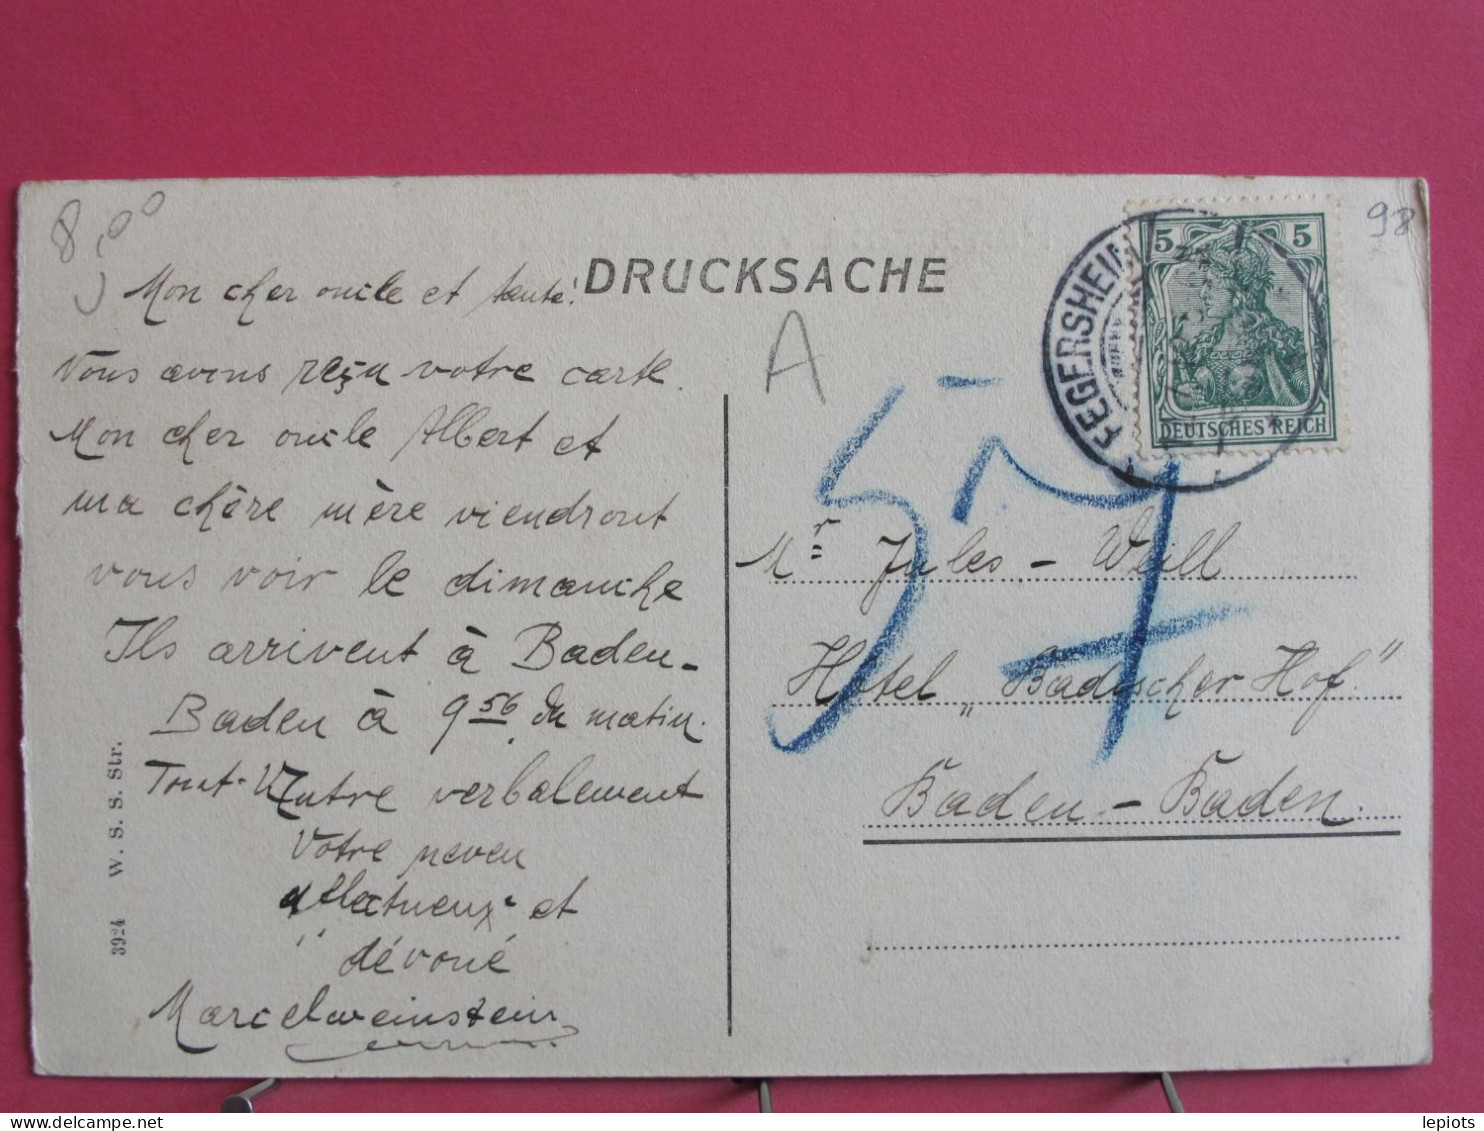 8,00
98
DRUCKSACHE
A
5
5
DEUTSCHES REICH
FEGERSHEIM
57
Mon cher oncle et tante!
Vous avons reçu votre carte.
Mon cher oncle Albert et
ma chère mère viendront
vous voir le dimanche
Ils arrivent à Baden-
Baden à 9 56 du matin.
Tout autre verbalement
Votre neveu
affectueux et
dévoué
Marcel Weinstein
Mr Jules - Weill
Hôtel „Badischer Hof"
Baden - Baden.
3924 W. S. S. Str.
lepiots